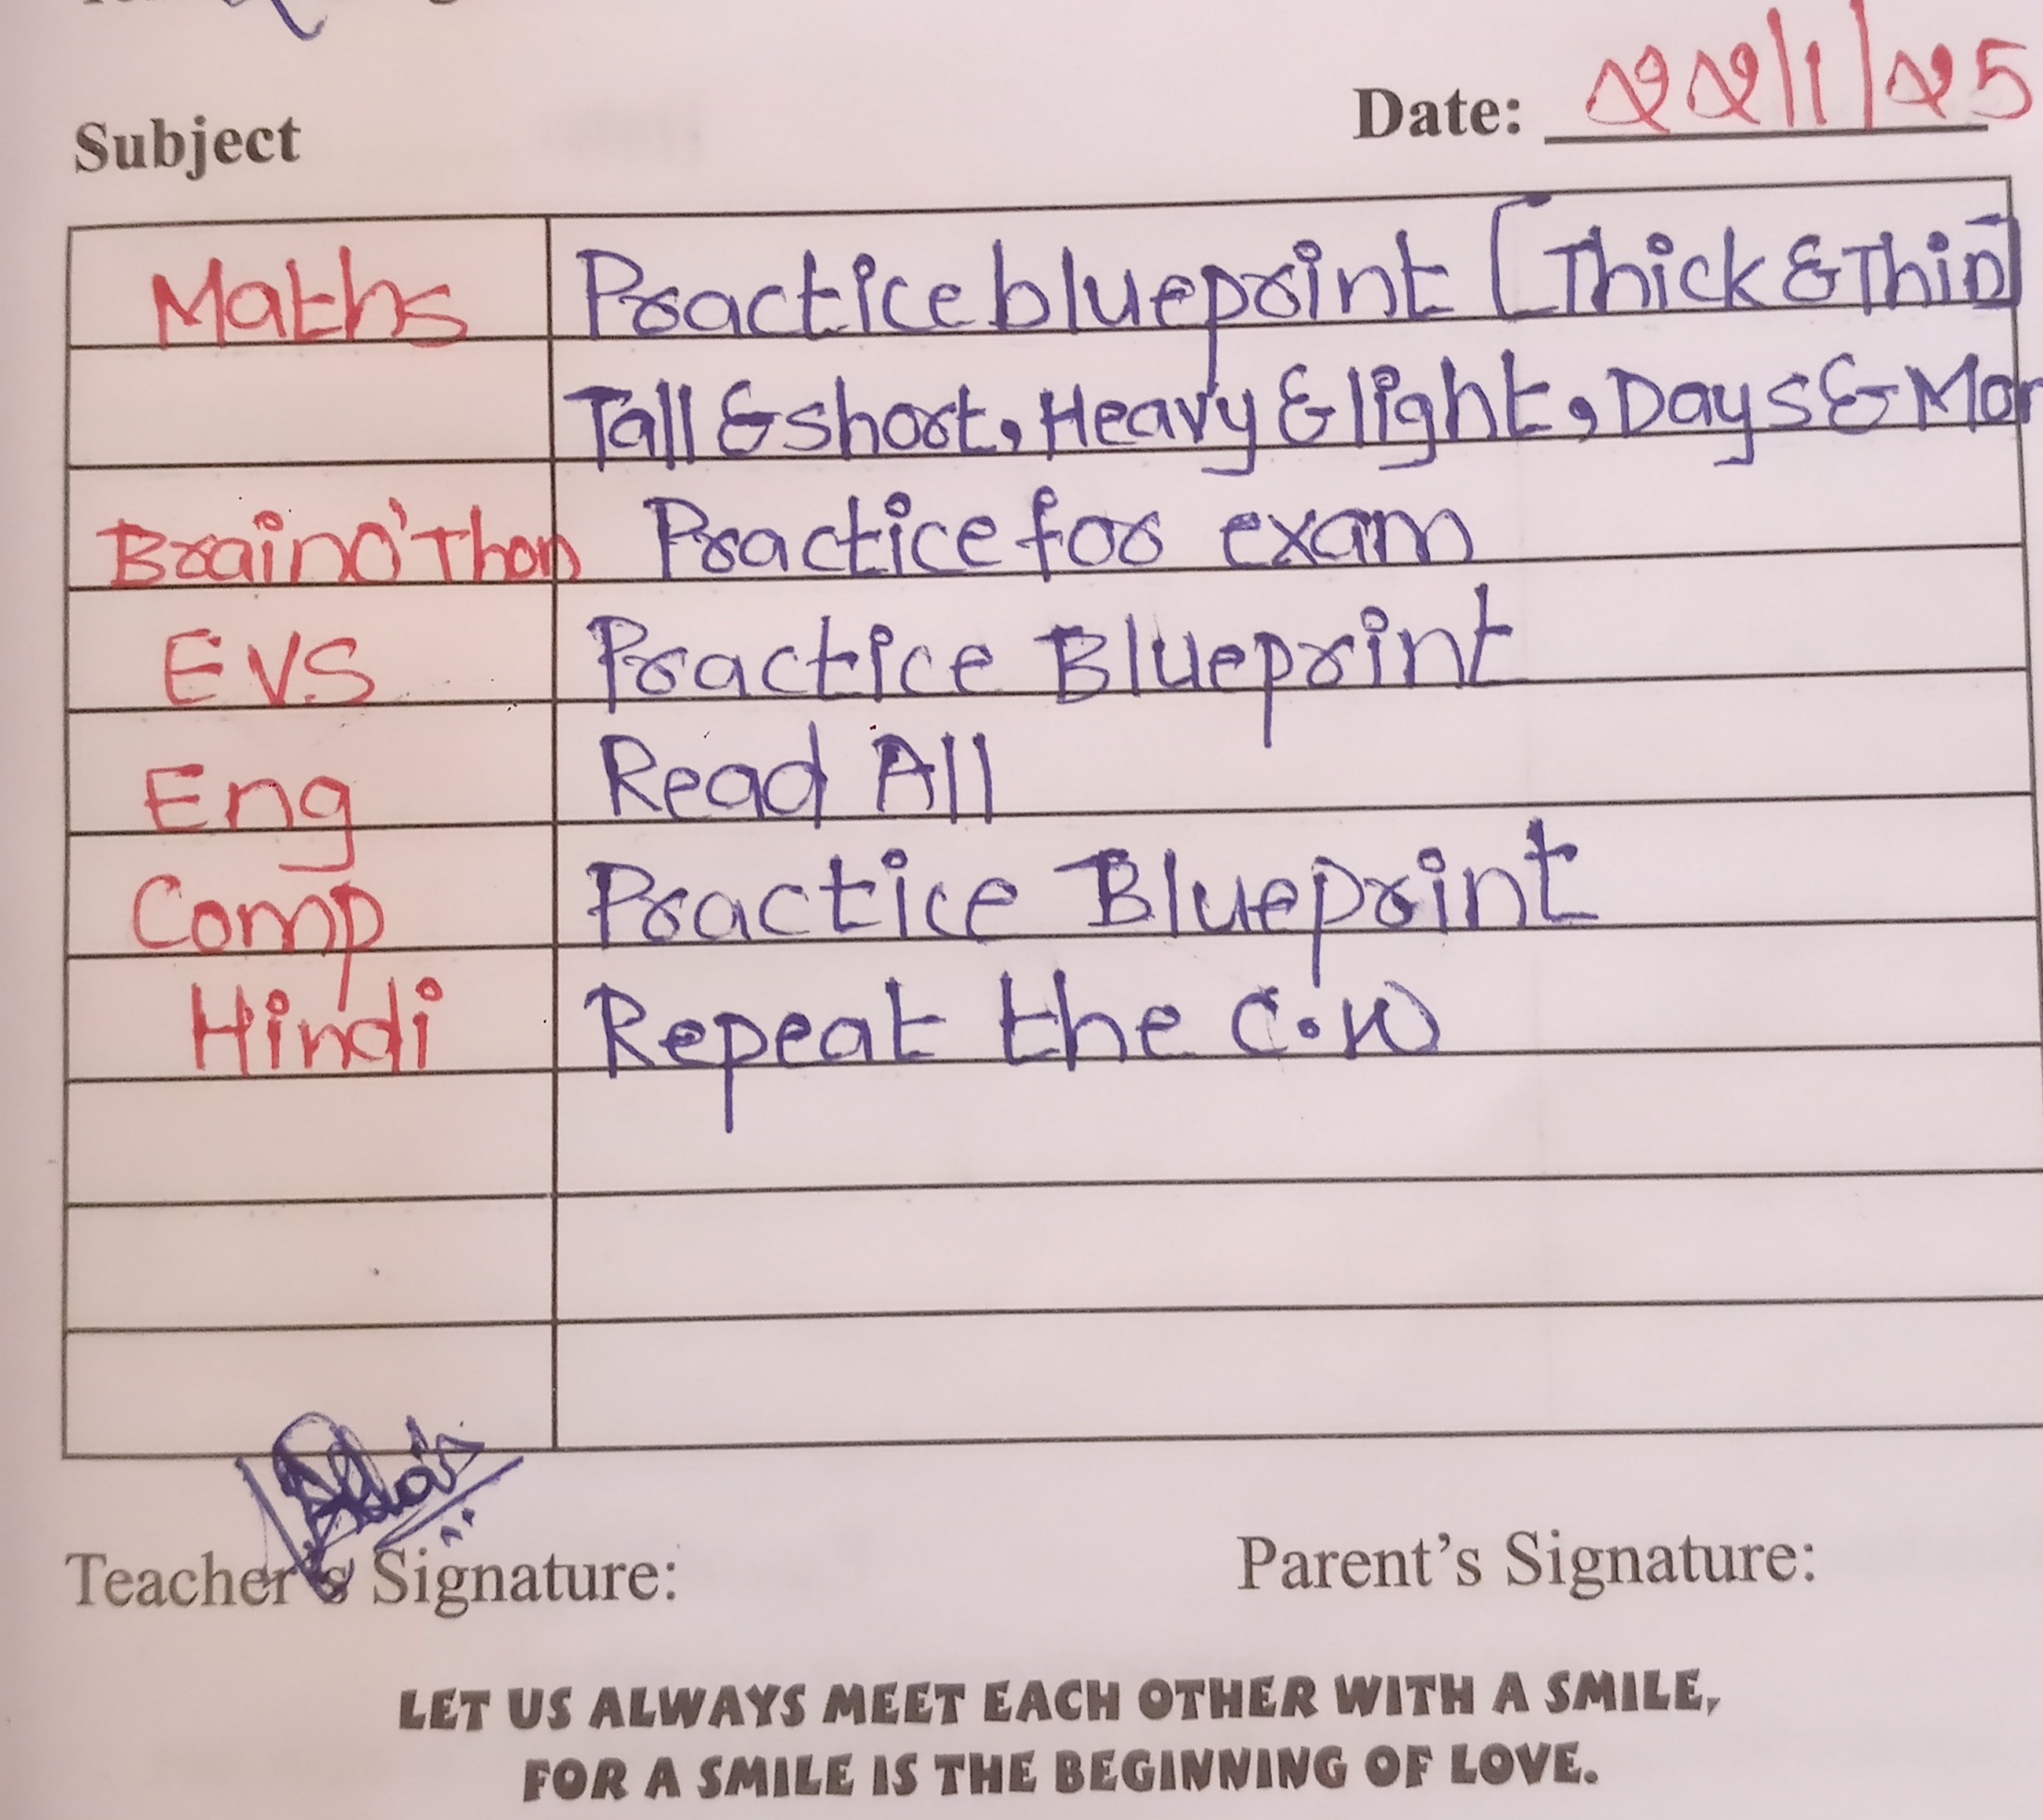 Date: 22/1/25
Subject
Maths Practice blueprint [Thick & Thin]
Tall & short, Heavy & light, Days & Mon
Braino'Thon Practice for exam
EVS Practice Blueprint
Eng Read All
Comp Practice Blueprint
Hindi Repeat the C.W
Teacher's Signature: Parent's Signature:
LET US ALWAYS MEET EACH OTHER WITH A SMILE,
FOR A SMILE IS THE BEGINNING OF LOVE.